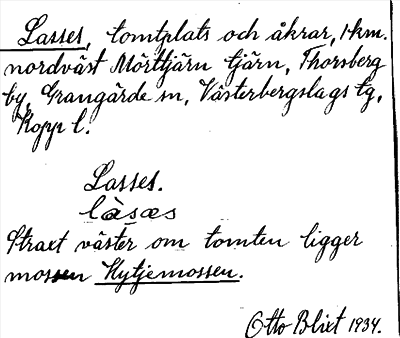 Lasses, tomtplats och åkrar, 1 km.
nordväst Mörttjärn tjärn, Thorsberg
by, Grangärde sn, Västerbergslags tg,
Kopp l.
Lasses.
làsæs
Straxt väster om tomten ligger
mossen Hytjemossen.
Otto Blixt 1934.